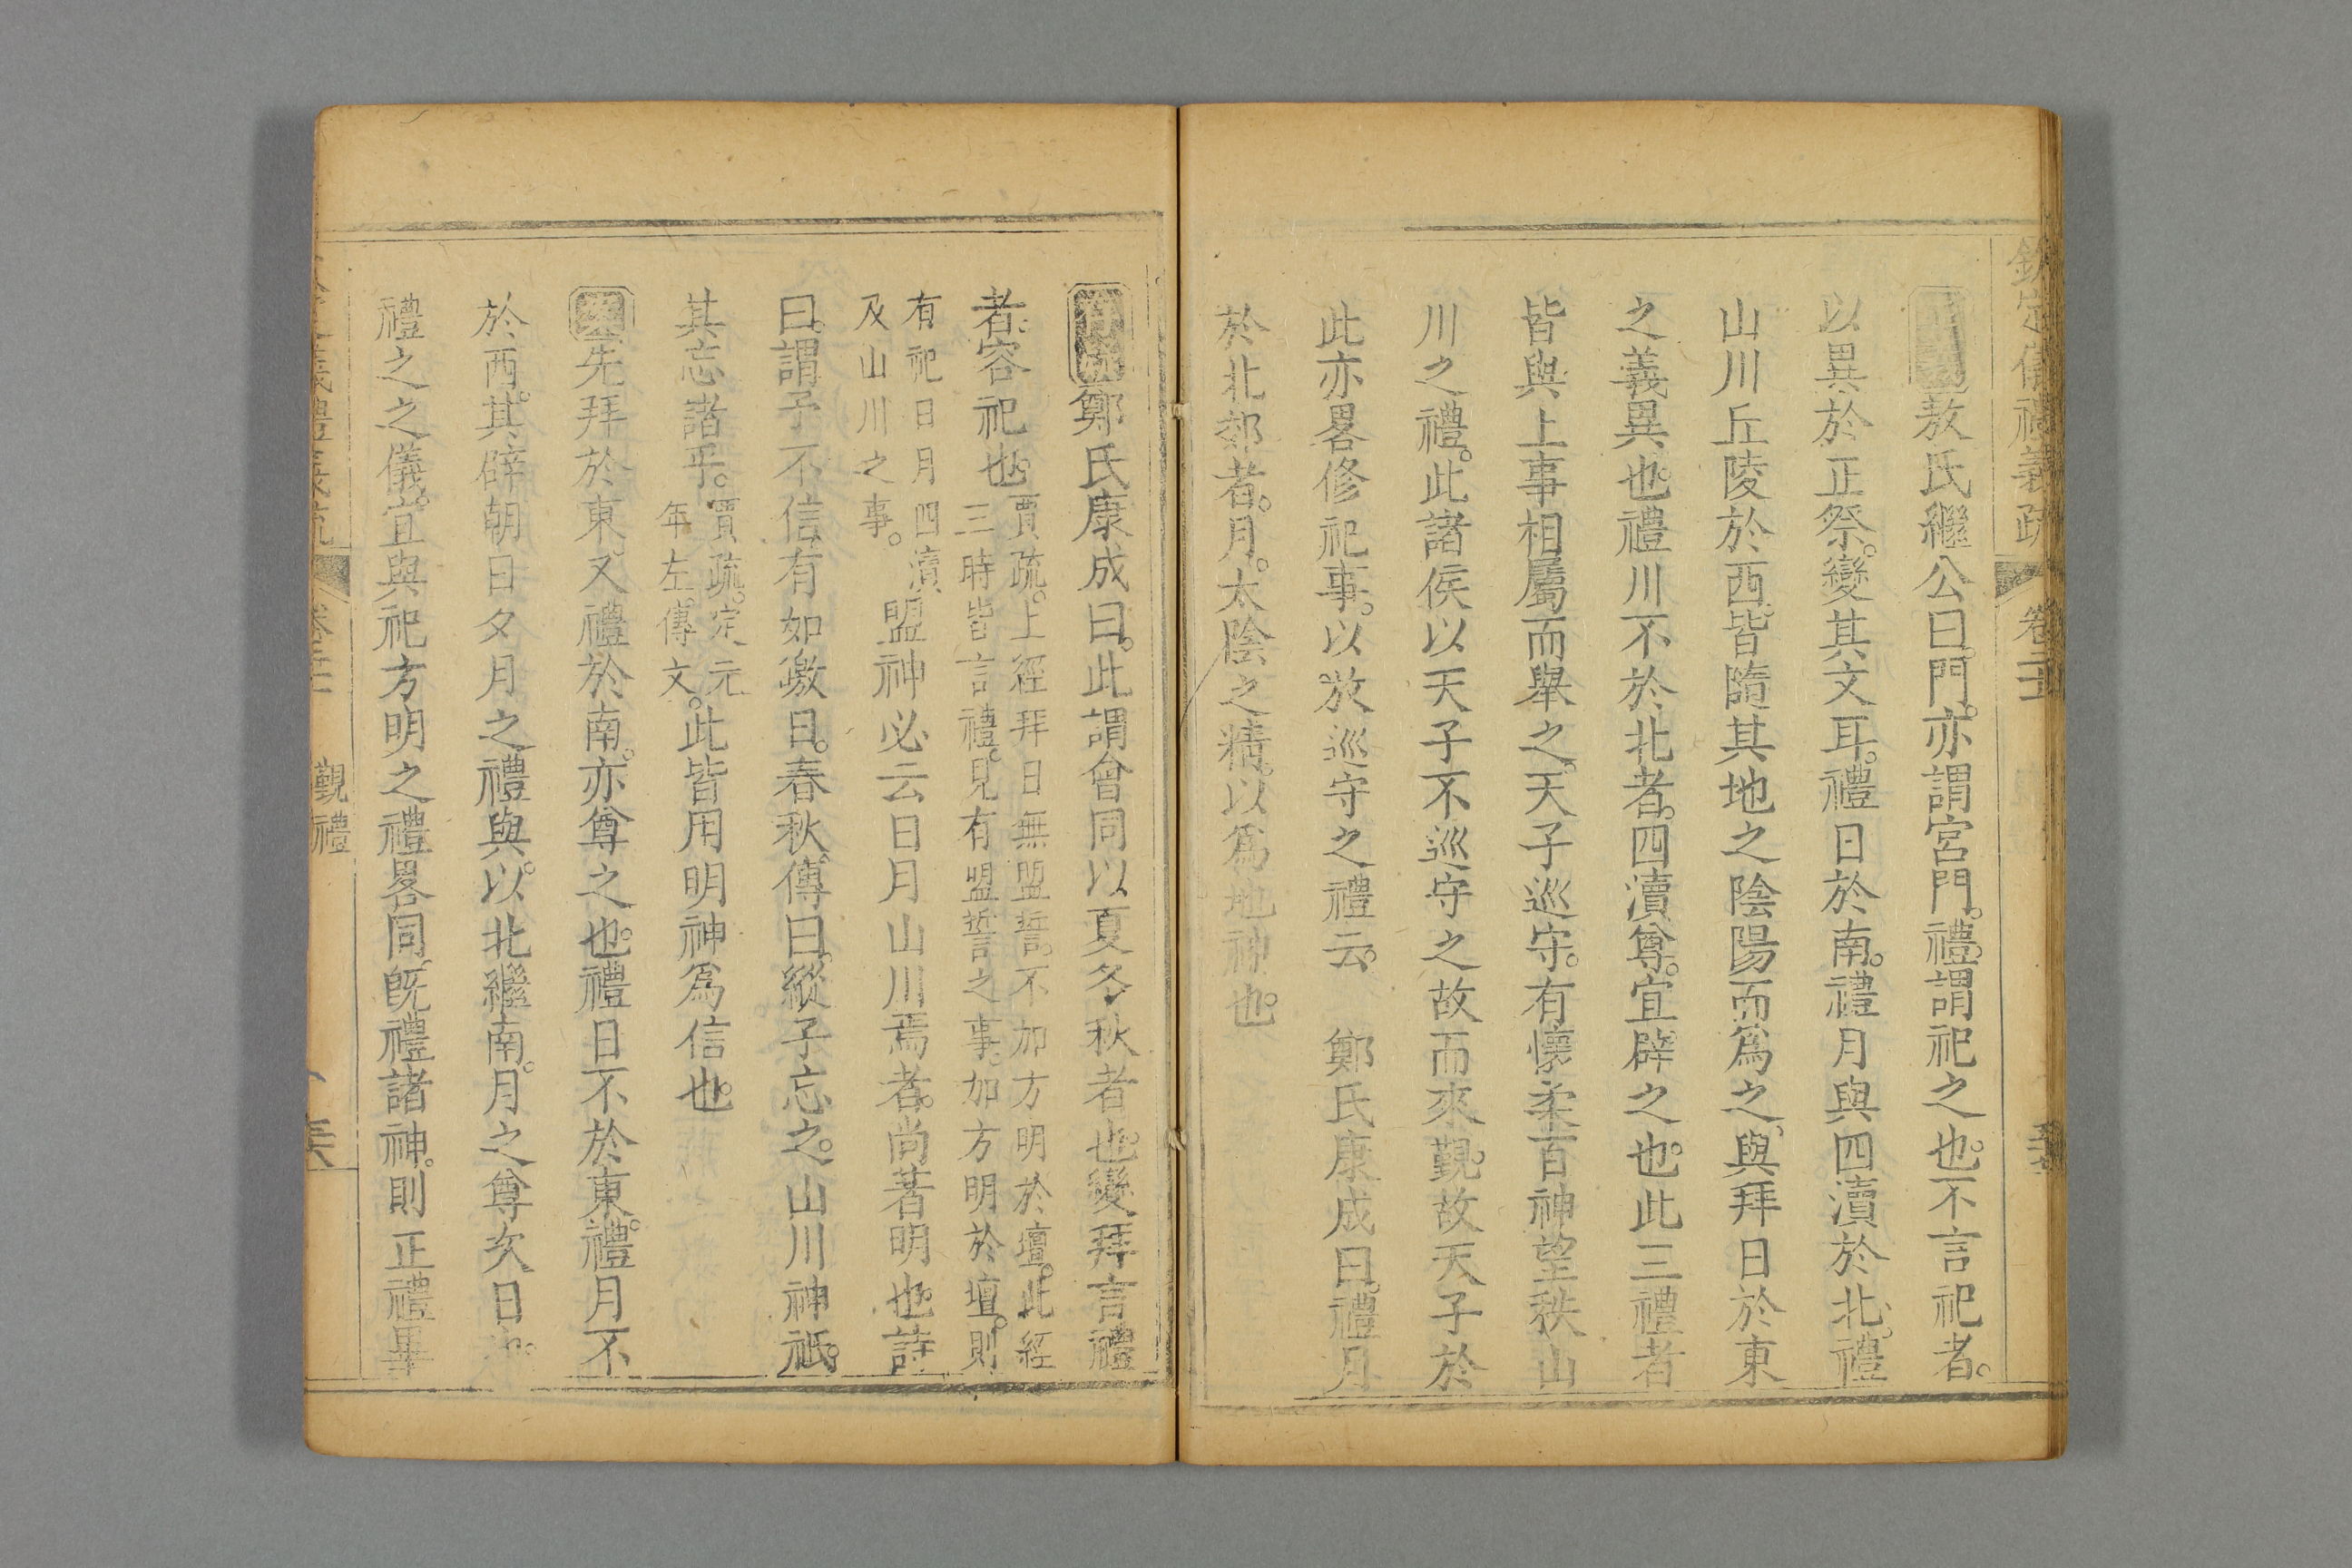 欽定儀禮義疏 卷二十
敖氏繼公曰。門。亦謂宮門。禮。謂祀之也。不言祀者。
以異於正祭。變其文耳。禮日於南。禮月與四瀆於北。禮
山川丘陵於西。皆隨其地之陰陽而爲之。與拜日於東
之義異也。禮川不於北者。四瀆尊。宜辟之也。此三禮者
皆與上事相屬而舉之。天子巡守。有懷柔百神望秩山
川之禮。此諸侯以天子不巡守之故而來覲。故天子於
此亦畧修祀事。以放巡守之禮云。 鄭氏康成曰。禮月
於北郊者。月。太陰之精。以爲地神也。
鄭氏康成曰。此謂會同以夏冬秋者也。變拜言禮
者。容祀也。賈疏。上經拜日無盟誓。不加方明於壇。此經
三時皆言禮。見有盟誓之事。加方明於壇。則
有祀日月四瀆
及山川之事。盟神必云日月山川焉者。尚著明也。詩
曰。謂予不信。有如皦日。春秋傳曰。縱子忘之。山川神祇。
其忘諸乎。賈疏。定元
年左傳文。此皆用明神爲信也。
案先拜於東。又禮於南。亦尊之也。禮日不於東。禮月不
於西。其辟朝日夕月之禮與。以北繼南。月之尊次日也。
禮之之儀。宜與祀方明之禮畧同。旣禮諸神。則正禮畢
覲禮